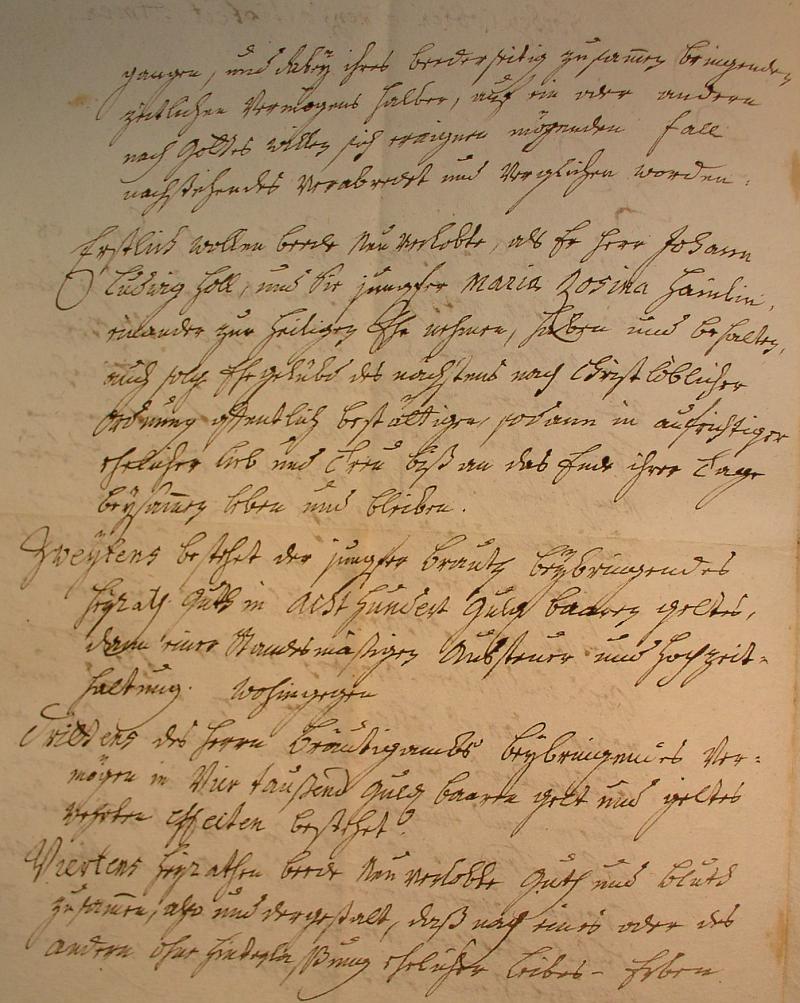 gangen, und dabey ihres beederseitig zusamen bringenden
zeitlichen Vermögens halber, auf ein oder andern
nach Gottes willen sich eraignen mögenden Fall
nachstehendes Verabredet und Verglichen worden.
Erstlich wollen beede Neu Verlobte, als Er Herr Johann
Ludwig Holl, und Sie Jungfer Maria Rosina Hainlin,
einander zur Heiligen Ehe nehmen, haben und behalten,
auch solch Ehegelübd des nächstens nach Christlöblicher
Ordnung offentlich bestättigen, sodann in aufrichtiger
ehelicher Lieb und Treu biß an das Ende ihrer Tage
beysamen leben und bleiben.
Zweytens bestehet der Jungfer Brauth beybringendes
Heyrath Guth in Acht Hundert Guld baaren geltes,
dann einer Standesmäßigen Aussteuer und Hochzeit-
haltung. Wohingegen
Drittens des Herrn Bräutigambs beybringendes Ver-
mögen in Vier taußend Guld baaren gelt und geltes
werthen Effecten bestehet.
Viertens Heyrathen beede Neu Verlobte Guth und Bluth
zusamen, also und dergestalt, daß nach eines oder des
andern ohne Hinderlaßung ehelicher Leibes-Erben